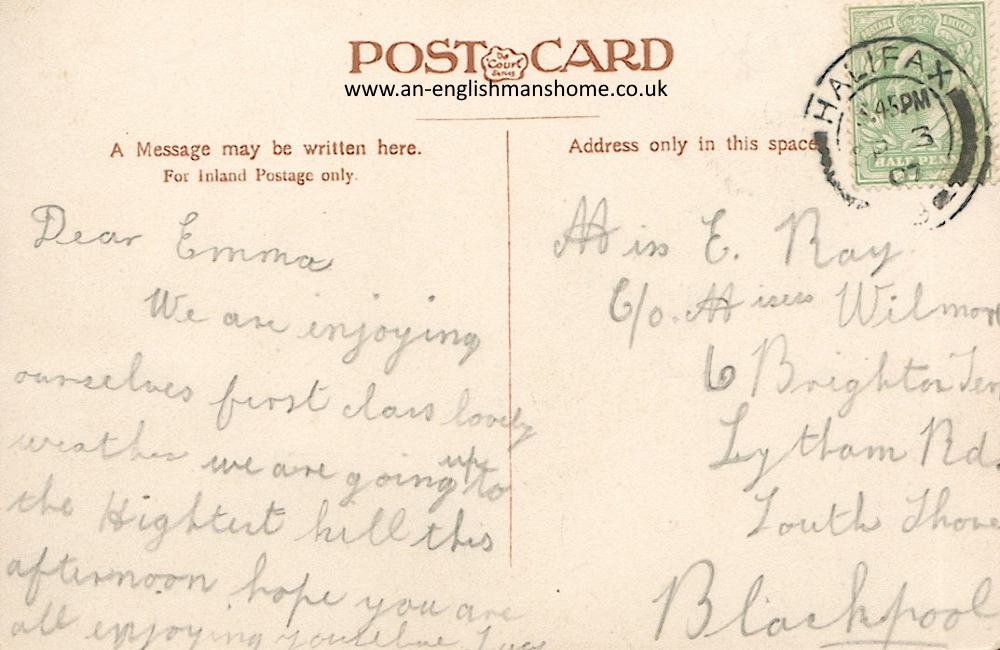 POST CARD
De Court Series
www.an-englishmanshome.co.uk
A Message may be written here.
For Inland Postage only.
Address only in this space
HALIFAX
.45PM
3
07
HALF PENN
Dear Emma
We are enjoying
ourselves first class lovely
weather we are going up to
the Hightest hill this
afternoon hope you are
all enjoying
Miss E. Ray
C/o. Misses Wilmor
6 Brighton Terr
Lytham Rd.
South Shore
Blackpool